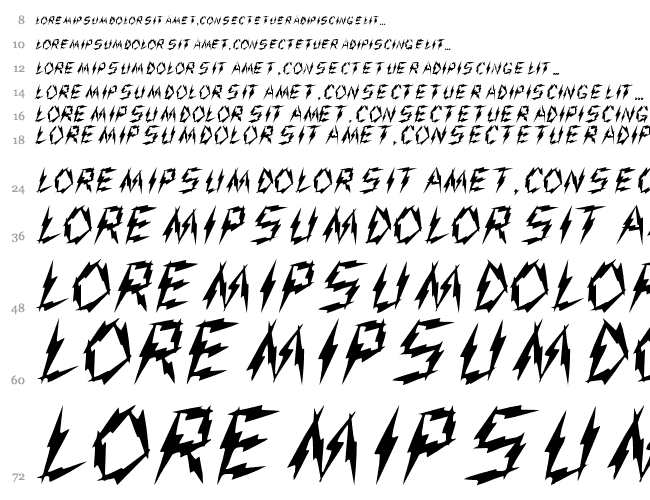 8 LOREM IPSUM DOLOR SIT AMET, CONSECTETUER ADIPISCING ELIT...
10 LOREM IPSUM DOLOR SIT AMET, CONSECTETUER ADIPISCING ELIT...
12 LOREM IPSUM DOLOR SIT AMET, CONSECTETUER ADIPISCING ELIT...
14 LOREM IPSUM DOLOR SIT AMET, CONSECTETUER ADIPISCING ELIT...
16 LOREM IPSUM DOLOR SIT AMET, CONSECTETUER ADIPISCING
18 LOREM IPSUM DOLOR SIT AMET, CONSECTETUER ADIP
24 LOREM IPSUM DOLOR SIT AMET, CONSEC
36 LOREM IPSUM DOLOR SIT A
48 LOREM IPSUM DOLOR
60 LOREM IPSUM DO
72 LOREM IPSUM